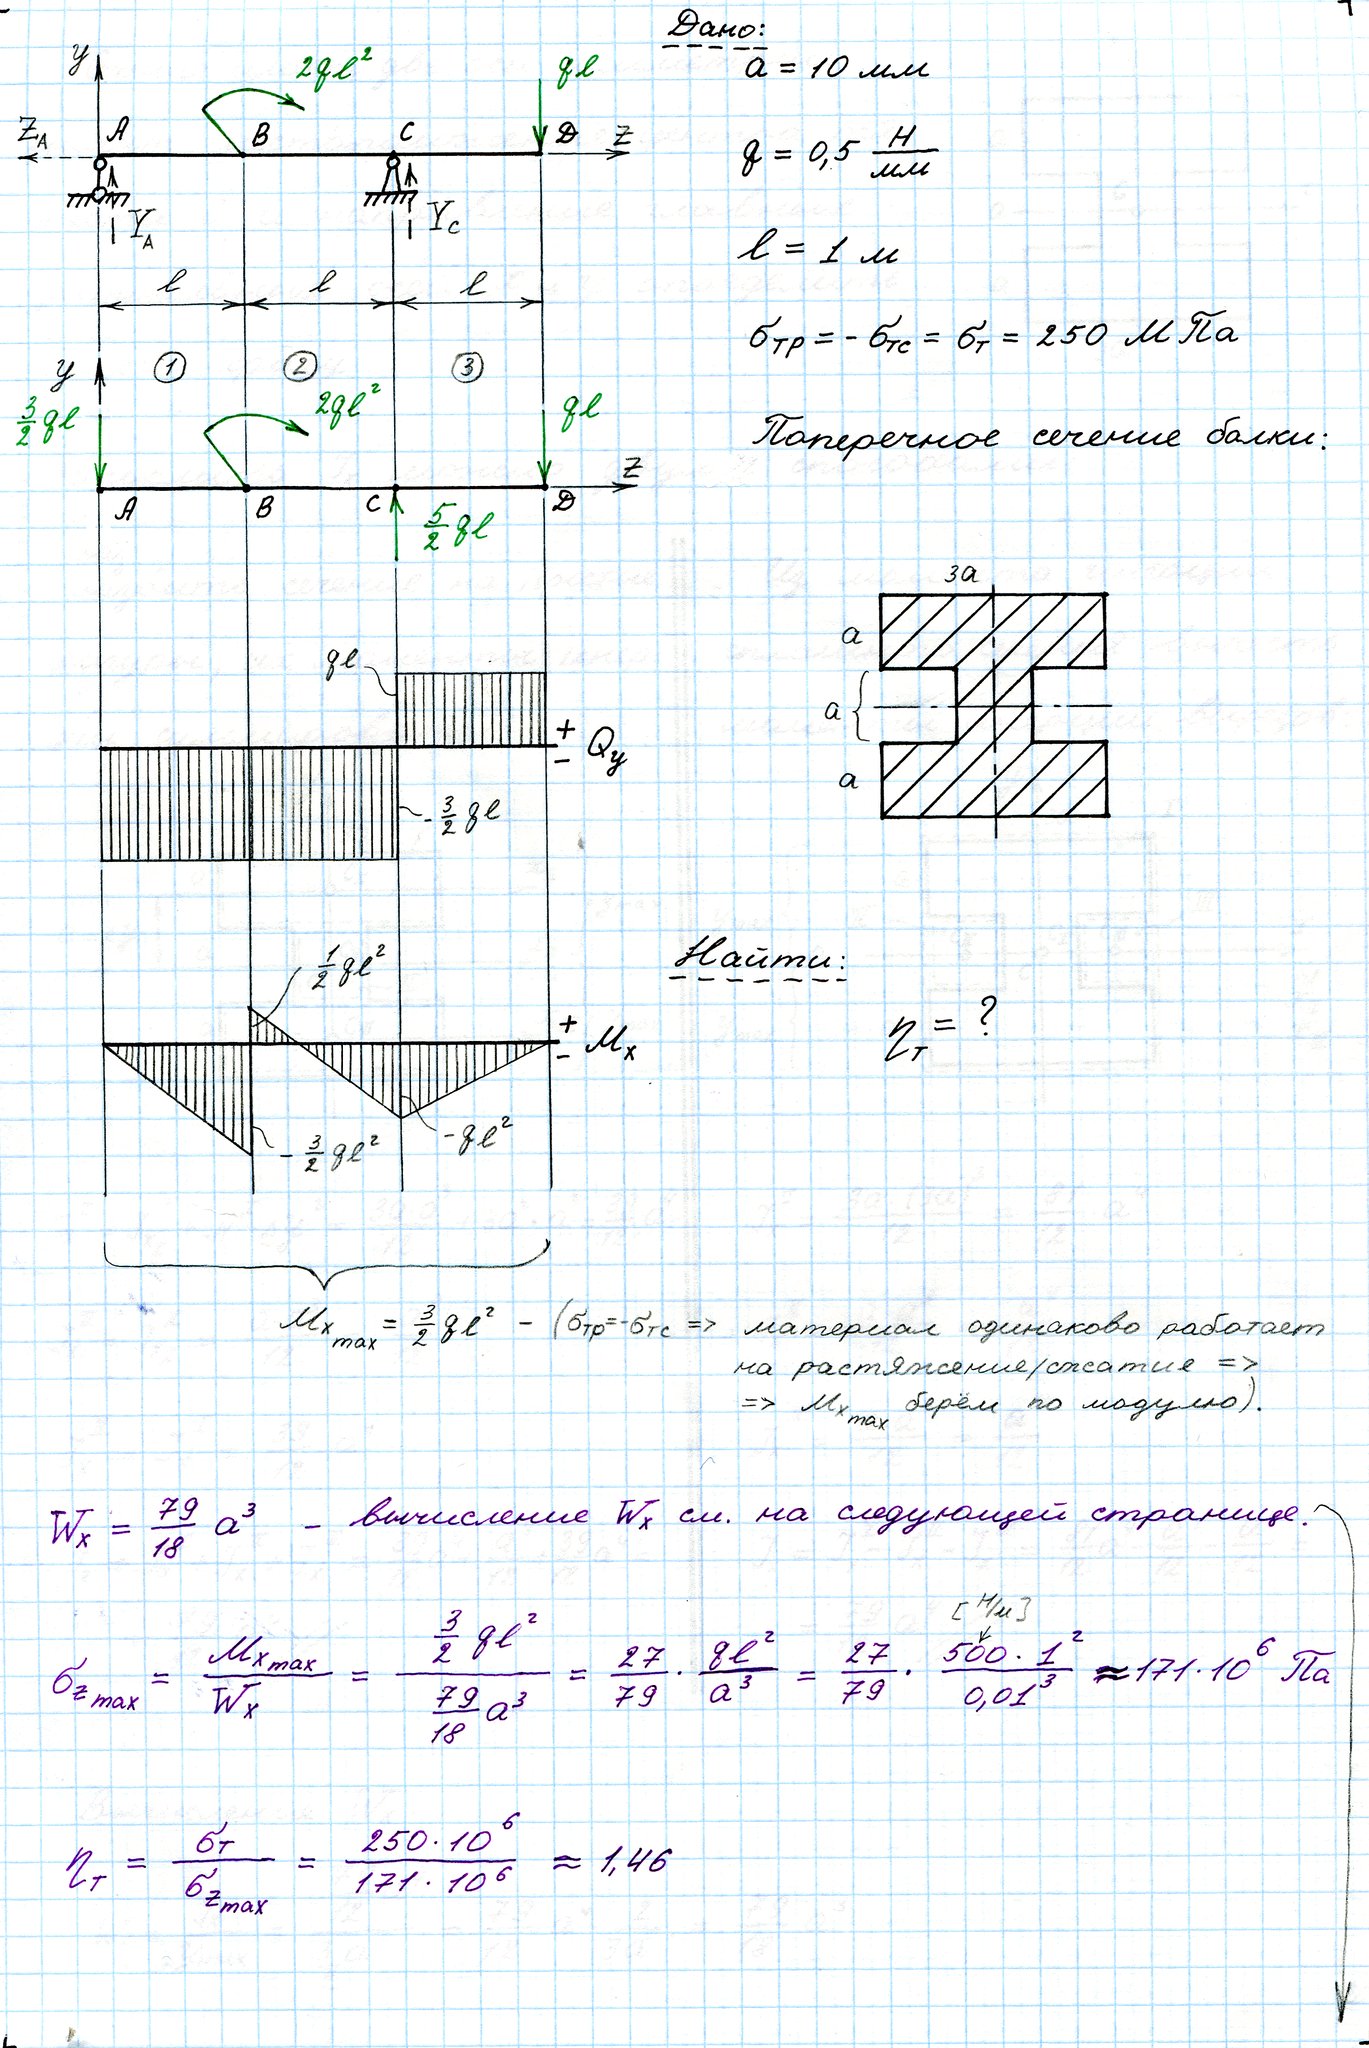 Дано:
a = 10 мм
q = 0,5 Н/мм
l = 1 м
σтр = - σтс = σт = 250 МПа
Поперечное сечение балки:
y
2ql²
ql
Z_A
A
B
C
D
Z
Y_A
Y_C
l
l
l
1
2
3
y
3/2 ql
2ql²
ql
Z
A
B
C
D
5/2 ql
3a
a
a
a
ql
+
-
Qy
- 3/2 ql
Найти:
ηт = ?
1/2 ql²
+
-
Mx
- 3/2 ql²
- ql²
Mx max = 3/2 ql² - (σтр=-σтс => материал одинаково работает
на растяжение/сжатие =>
=> Mx max берём по модулю).
Wx = 79/18 a³ - вычисление Wx см. на следующей странице.
[Н/м]
σz max = Mx max / Wx = 3/2 ql² / 79/18 a³ = 27/79 · ql²/a³ = 27/79 · 500 · 1² / 0,01³ ≈ 171·10⁶ Па
ηт = σт / σz max = 250·10⁶ / 171·10⁶ ≈ 1,46